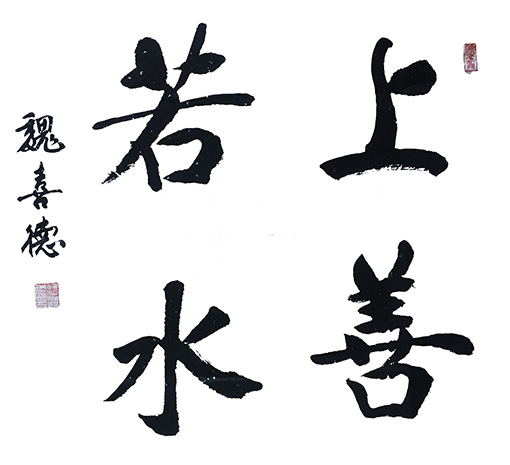 上善
若水
魏喜德